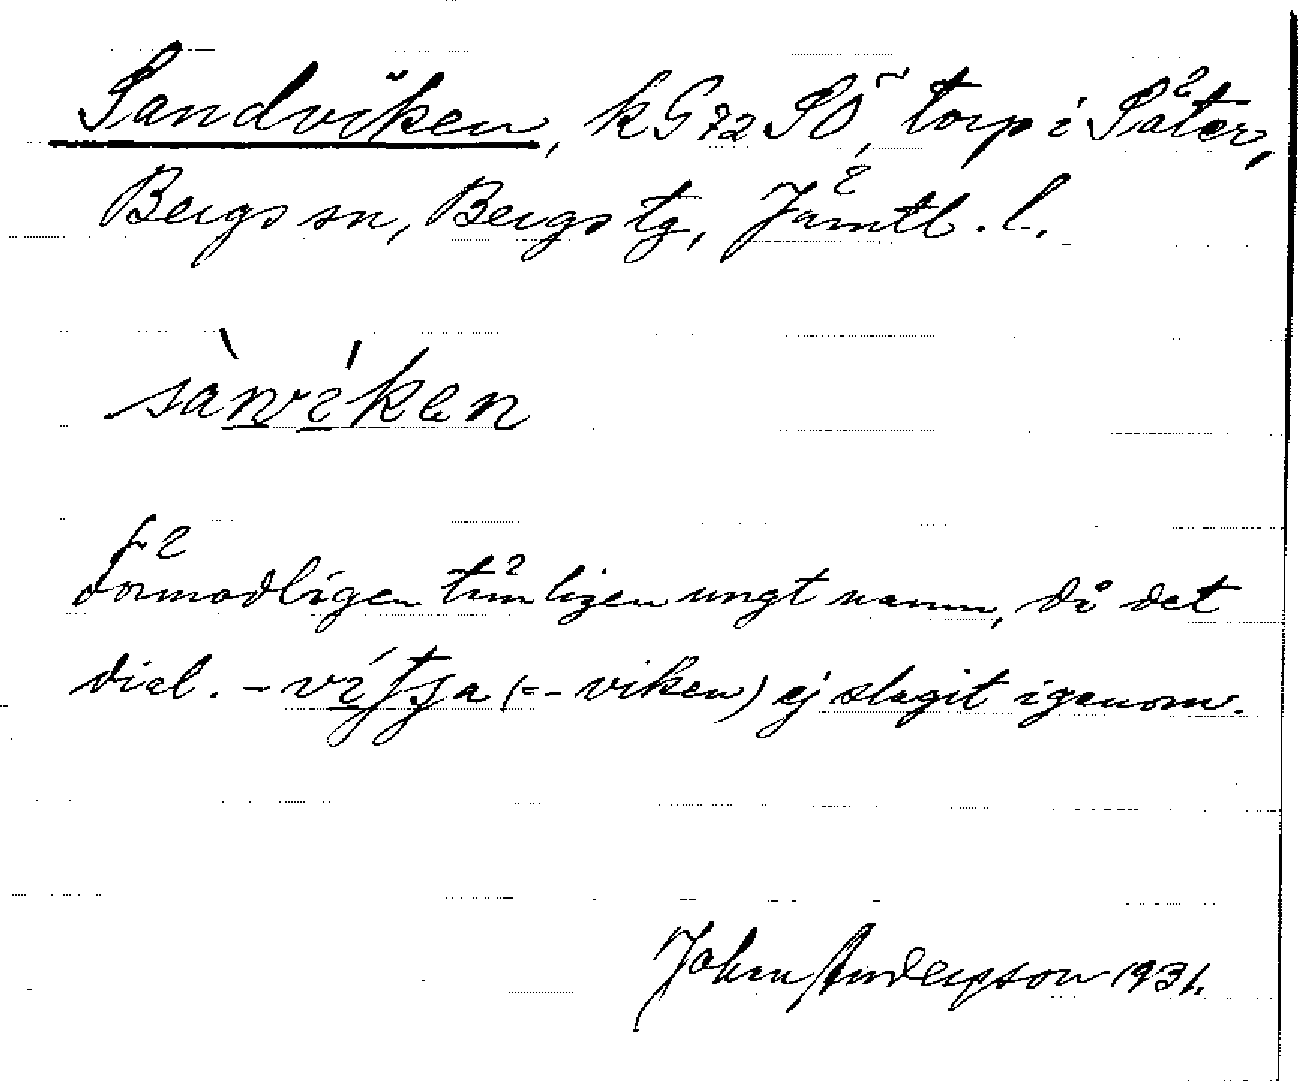 Sandviken, kG 72 SÖ, torp i Såter,
Bergs sn, Bergs tg, Jämtl. l.
sànvíken
Förmodligen tämligen ungt namn, då det
dial. -vítja (= -viken) ej slagit igenom.
Johan Anderson 1931.